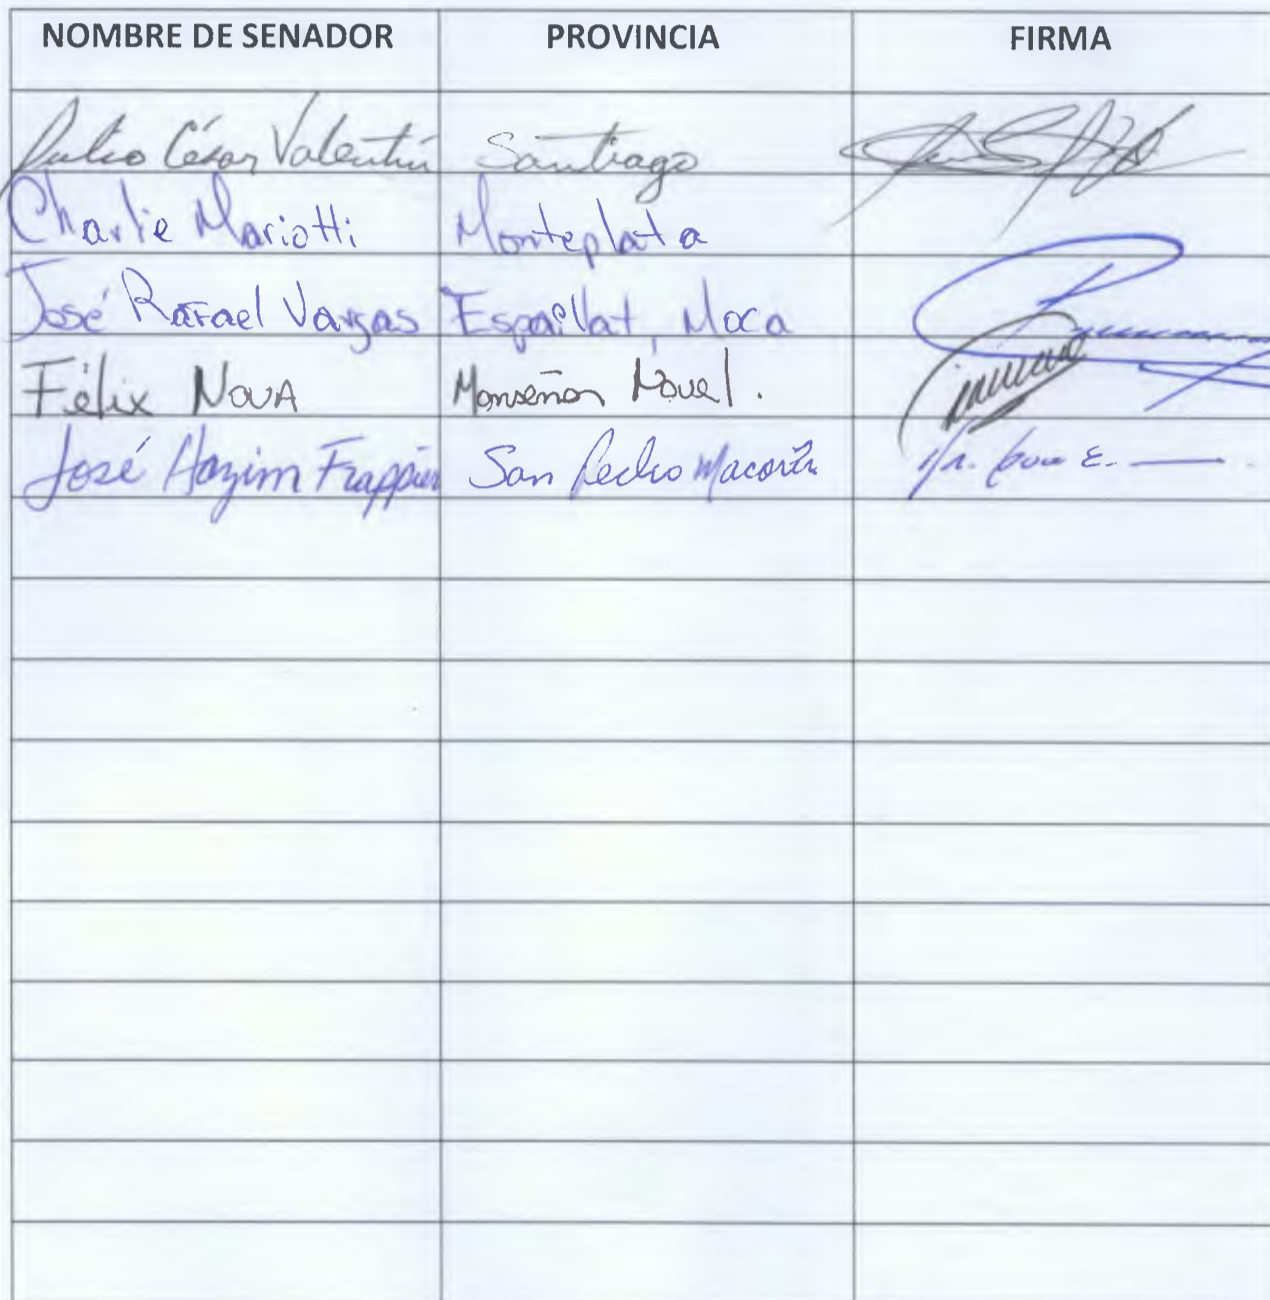 NOMBRE DE SENADOR PROVINCIA FIRMA
Julio César Valentín Santiago
Charlie Mariotti Monteplata
José Rafael Vargas Espaillat, Moca
Félix NOVA Monseñor Nouel.
José Hazim Frappier San Pedro Macorís